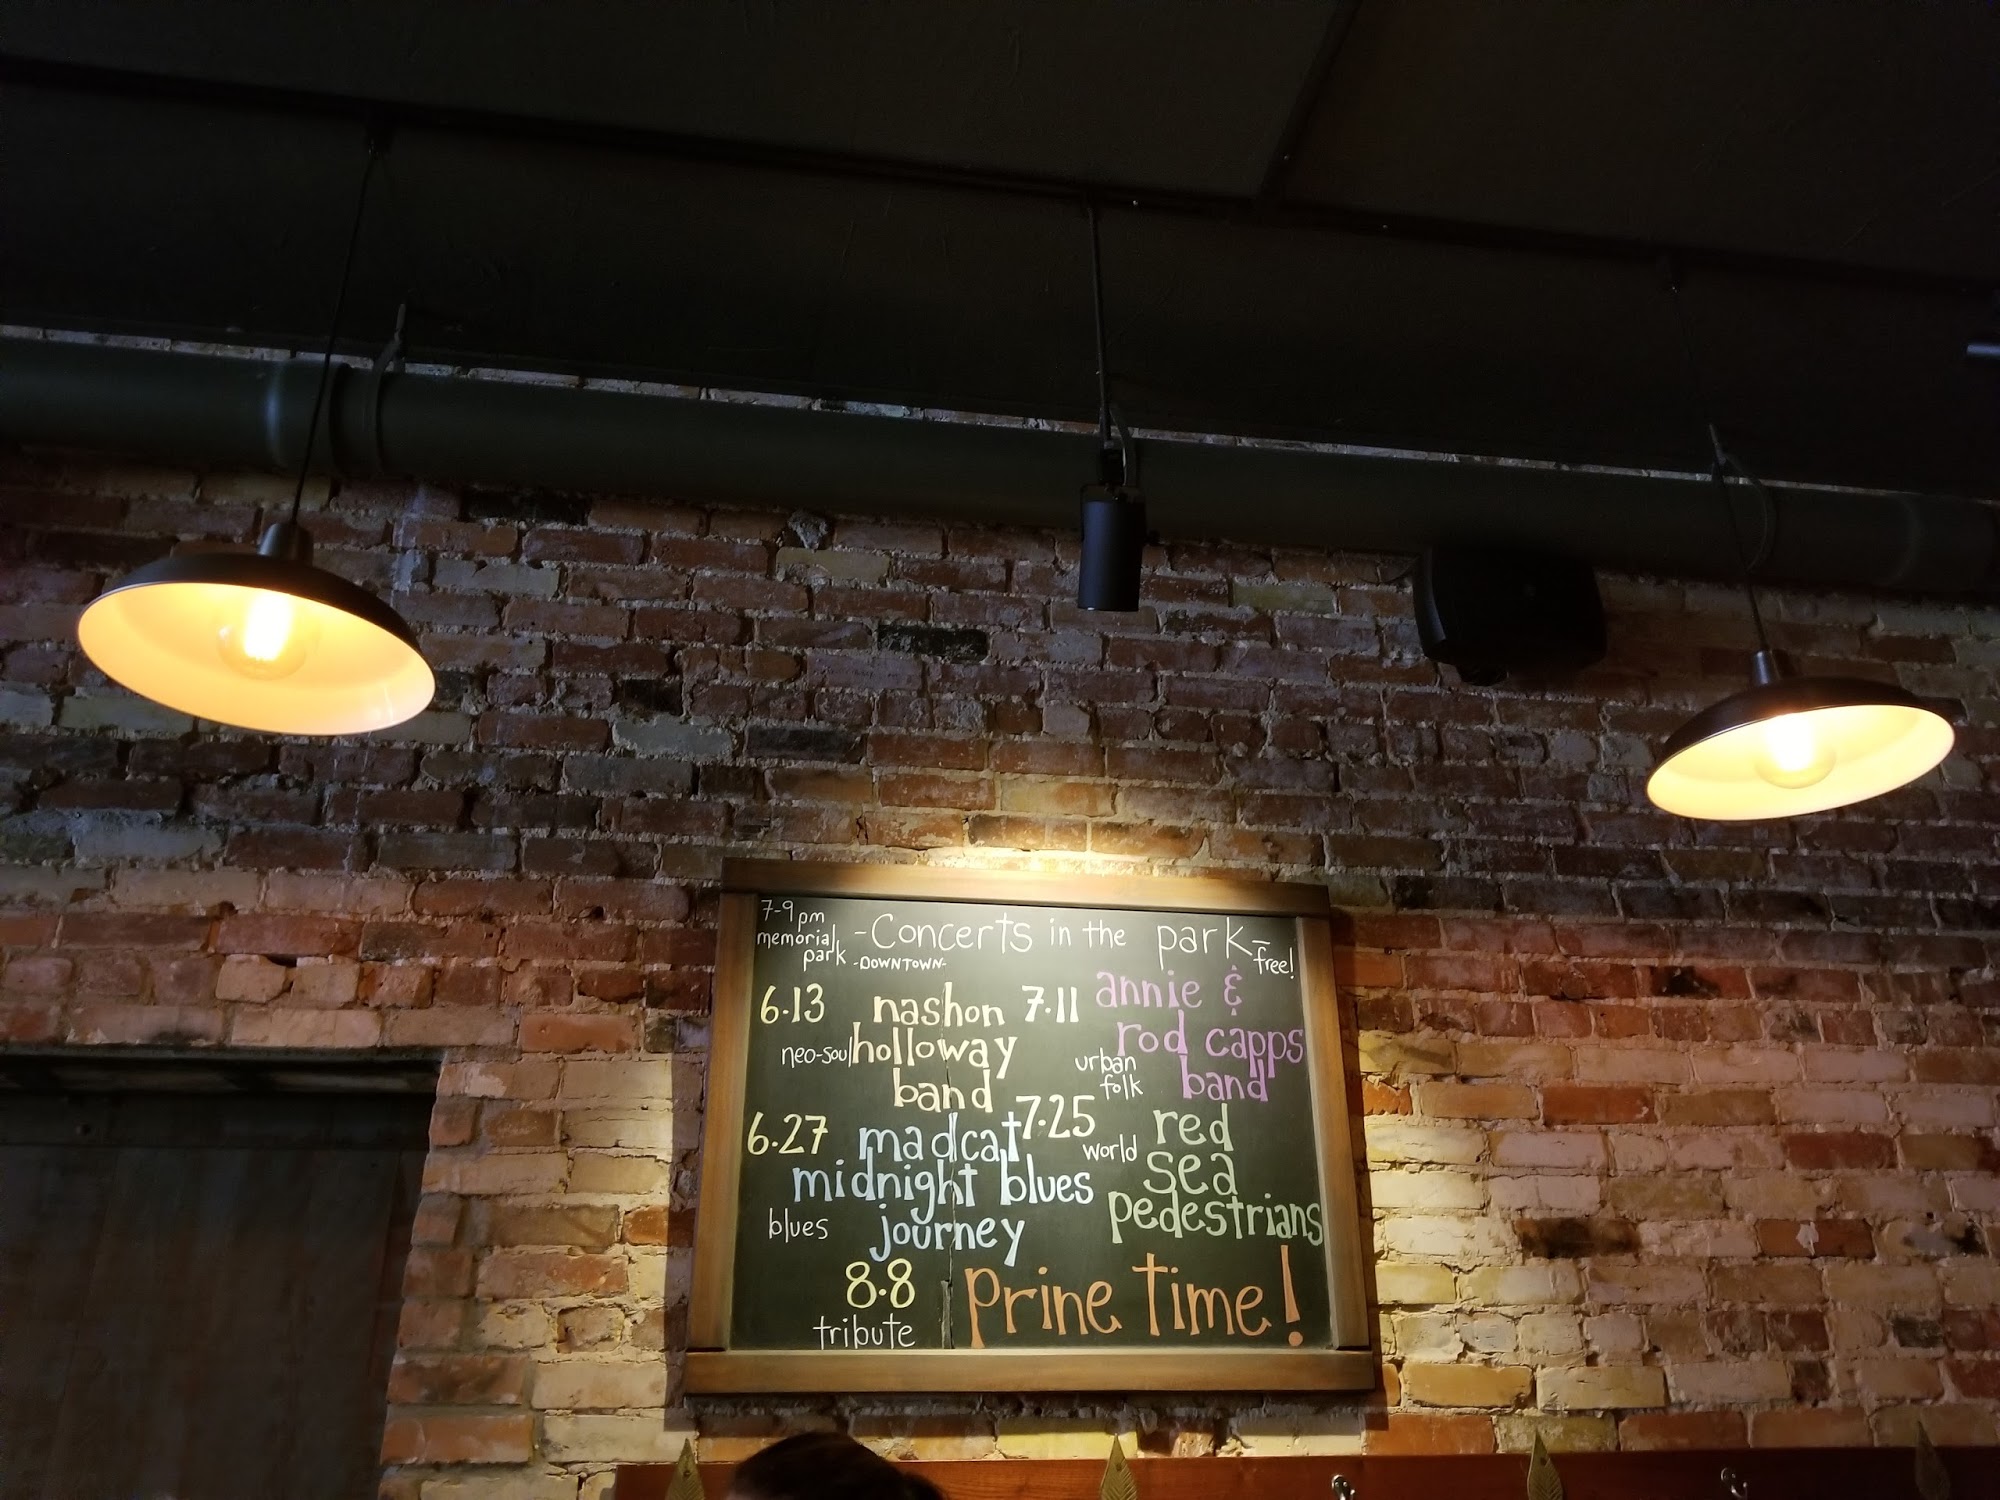 7-9pm
memorial
park
-Concerts in the park-
-DOWNTOWN-
free!
6.13 nashon
neo-soul holloway
band
7.11 annie &
rod capps
urban
folk
band
6.27 madcat
midnight blues
blues journey
7.25 red
world sea
pedestrians
8.8 prine time!
tribute